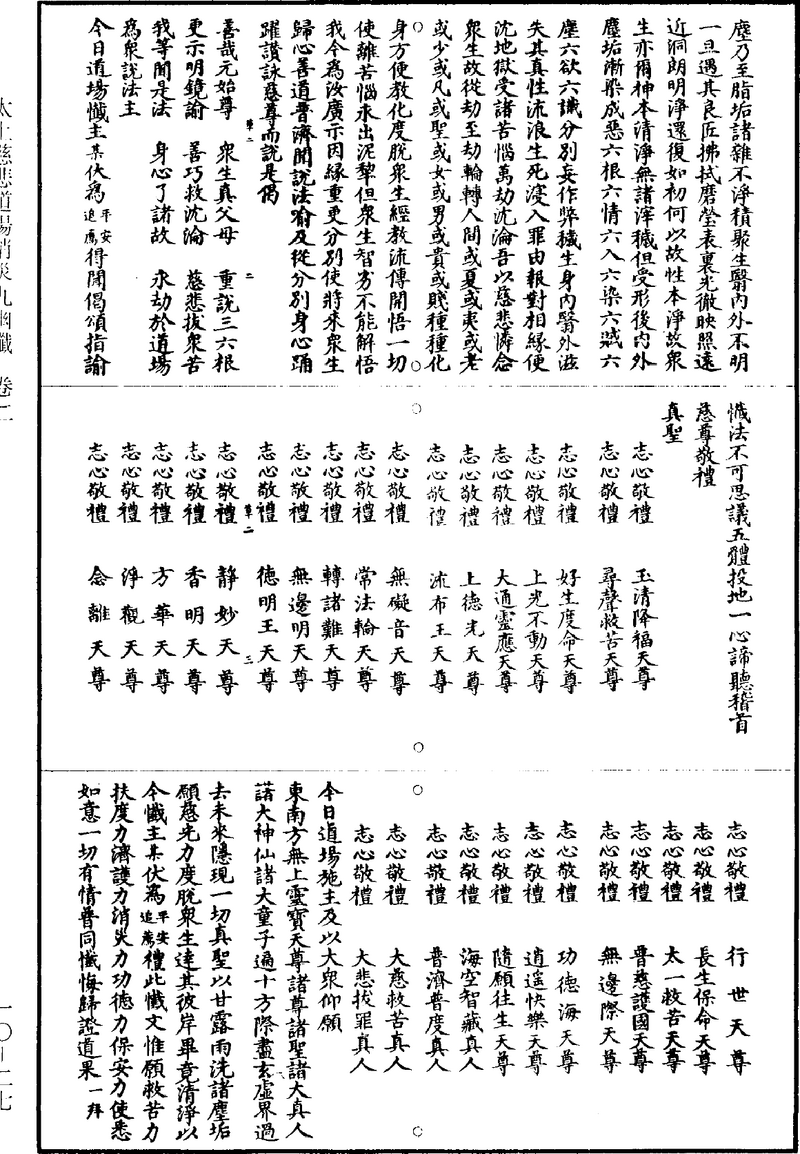 塵乃至脂垢諸雜不淨積聚生翳內外不明
一旦遇其良匠拂拭磨瑩表裏光徹映照遠
近洞朗明淨還復如初何以故性本淨故眾
生亦爾神本清淨無諸滓穢但受形後內外
塵垢漸染成惡六根六情六入六染六賊六
塵六欲六識分別妄作弊穢生身內翳外滋
失其真性流浪生死寖入罪由報對相緣便
沈地獄受諸苦惱萬劫沈淪吾以慈悲憐念
眾生故從劫至劫輪轉人間或夏或夷或老
或少或凡或聖或女或男或貴或賤種種化
身方便教化度脫眾生經教流傳開悟一切
使離苦惱永出泥犂但眾生智劣不能解悟
我今為汝廣示因緣重更分別使將來眾生
歸心善道普濟聞說法喻及從分別身心踊
躍讚詠慈尊而說是偈
善哉元始尊 眾生真父母 重說三六根
更示明鏡諭 善巧救沈淪 慈悲拔眾苦
我等聞是法 身心了諸故 永劫於道場
為眾說法主
今日道場懺主某伏為平安追薦得聞偈頌指諭
懺法不可思議五體投地一心諦聽稽首
慈尊敬禮
真聖
志心敬禮 玉清降福天尊
志心敬禮 尋聲救苦天尊
志心敬禮 好生度命天尊
志心敬禮 上光不動天尊
志心敬禮 大通靈應天尊
志心敬禮 上德光天尊
志心敬禮 流布王天尊
志心敬禮 無礙音天尊
志心敬禮 常法輪天尊
志心敬禮 轉諸難天尊
志心敬禮 無邊明天尊
志心敬禮 德明王天尊
志心敬禮 靜妙天尊
志心敬禮 香明天尊
志心敬禮 方華天尊
志心敬禮 淨觀天尊
志心敬禮 念離天尊
志心敬禮 行世天尊
志心敬禮 長生保命天尊
志心敬禮 太一救苦天尊
志心敬禮 普慈護國天尊
志心敬禮 無邊際天尊
志心敬禮 功德海天尊
志心敬禮 逍遥快樂天尊
志心敬禮 隨願往生天尊
志心敬禮 海空智藏真人
志心敬禮 普濟普度真人
志心敬禮 大慈救苦真人
志心敬禮 大悲拔罪真人
今日道場施主及以大眾仰願
東南方無上靈寶天尊諸尊諸聖諸大真人
諸大神仙諸大童子遍十方際盡玄虛界過
去未來隱現一切真聖以甘露雨洗諸塵垢
願慈光力度脫眾生達其彼岸畢竟清淨以
今懺主某伏為平安追薦禮此懺文惟願救苦力
扶度力濟護力消災力功德力保安力使悉
如意一切有情普同懺悔歸證道果一拜
太上慈悲道場消災九幽懺 卷二
一〇—二七